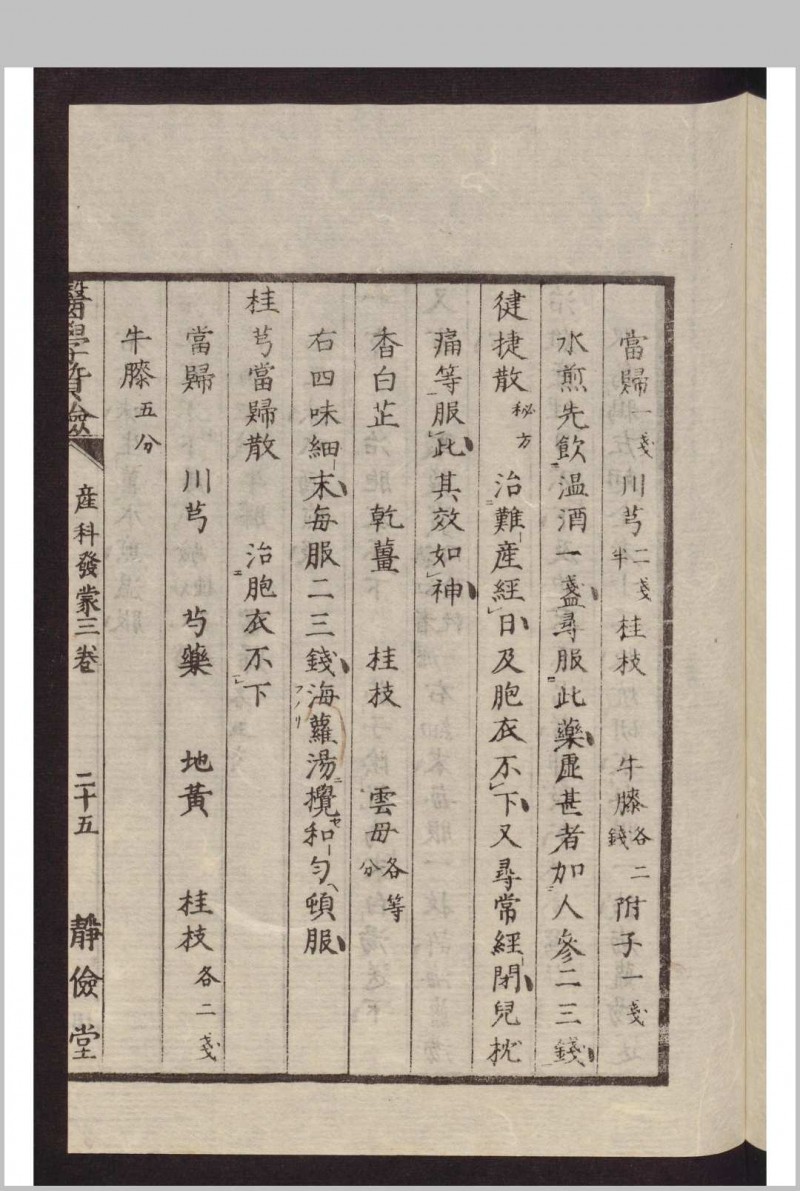 當歸一戔 川芎二戔半 桂枝 牛膝各二錢 附子一戔
水煎先飲温酒一盞尋服此藥虛甚者加人參二三錢
健捷散 秘方 治難産經日及胞衣不下又尋常經閉兒枕
痛等服此其效如神
香白芷 乾薑 桂枝 雲母各等分
右四味細末每服二三錢海蘿湯攪和勻頓服
フノリ
桂芎當歸散 治胞衣不下
當歸 川芎 芍藥 地黃 桂枝各二戔
牛膝五分
醫學質驗 産科發蒙三卷 二十五 靜儉堂